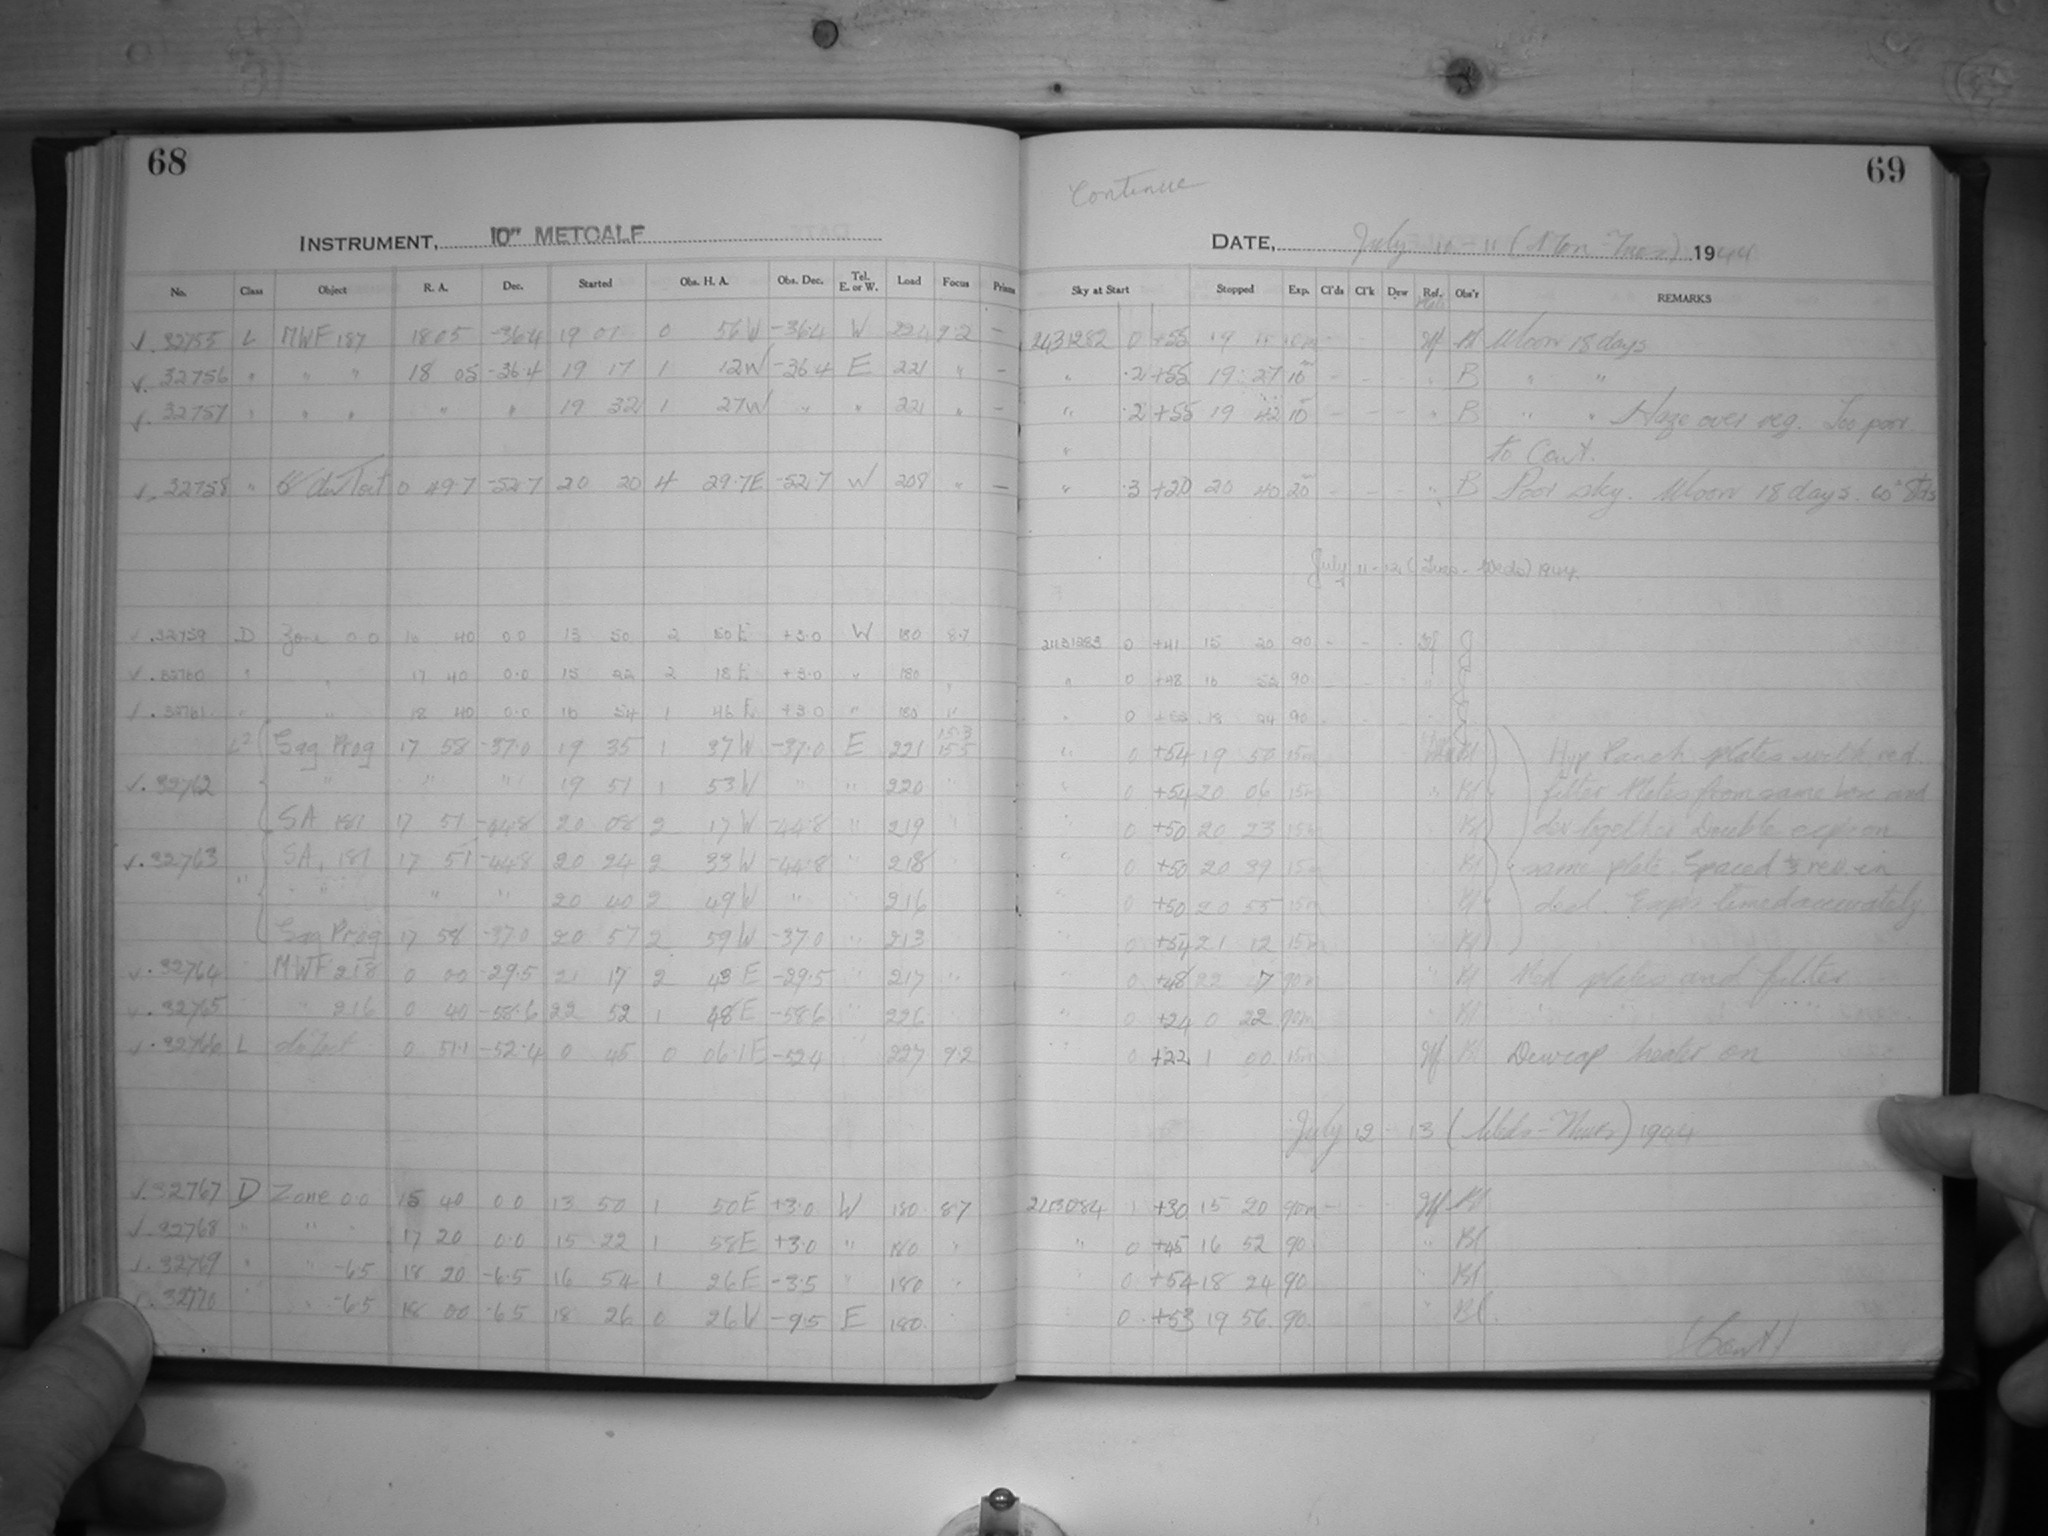 68
INSTRUMENT, 10" METCALF
No. Class Object R. A. Dec. Started Obs. H. A. Obs. Dec. Tel. E. or W. Load Focus Prisms
√. 32755 L MWF 187 18 05 -36.4 19 01 0 56 W -36.4 W 224 9.2 -
√. 32756 " " " 18 05 -36.4 19 17 1 12 W -36.4 E 221 " -
√. 32757 " " " " " 19 32 1 27 W " " 221 " -
√. 32758 " du Toit 0 49.7 -52.7 20 20 4 29.7 E -52.7 W 208 " -
√. 32759 D Zone 0.0 16 40 0.0 13 50 2 50 E +3.0 W 180 8.7
√. 32760 " " 17 40 0.0 15 22 2 18 E +3.0 " 180 "
√. 32761 " " 18 40 0.0 16 54 1 46 E +3.0 " 180 "
Sag Prog 17 58 -37.0 19 35 1 37 W -37.0 E 221 15.5
√. 32762 " " " 19 51 1 53 W " " 220 "
SA 187 17 51 -44.8 20 08 2 17 W -44.8 " 219 "
√. 32763 SA, 187 17 51 -44.8 20 24 2 33 W -44.8 " 218
" " " " 20 40 2 49 W " " 216
Sag Prog 17 58 -37.0 20 57 2 59 W -37.0 " 213
√. 32764 " MWF 218 0 00 -29.5 21 17 2 43 E -29.5 " 217 "
√. 32765 " 216 0 40 -58.6 22 52 1 48 E -58.6 " 226 "
√. 32766 L du Toit 0 51.1 -52.4 0 45 0 06.1 E -52.4 " 227 9.2
√. 32767 D Zone 0.0 15 40 0.0 13 50 1 50 E +3.0 W 180 8.7
√. 32768 " " 17 20 0.0 15 22 1 58 E +3.0 " 180 "
√. 32769 " " -6.5 18 20 -6.5 16 54 1 26 E -3.5 " 180 "
√. 32770 " -6.5 18 00 -6.5 18 26 0 26 W -9.5 E 180
69
Continue
DATE, July 10-11 (Mon-Tues) 1944
Sky at Start Stopped Exp. Cl'ds Cl'k Dew Ref. Obs'r REMARKS
2431282 0 +55 19 11 10m - - Bl Moon 18 days
" .2 +55 19 27 10 - - - " B " "
" .2 +55 19 42 10 - - - " B " " Haze over reg. Too poor
" to Cont.
" .3 +20 20 40 20 - - - " B Poor sky. Moon 18 days.
July 11-12 (Tues-Weds) 1944
2431283 0 +41 15 20 90 - - - J
" 0 +48 16 52 90 - - - "
" 0 18 24 90 - -
" 0 +54 19 50 15m Bl Hyp Panch plates with red
" 0 +54 20 06 15m " Bl filter Plates from same box and
" 0 +50 20 23 15m Bl dev together Double exp on
" 0 +50 20 39 15m Bl same plate. Spaced rev in
" 0 +50 20 55 15m Bl decl. Exps timed accurately
" 0 +54 21 12 15m Bl
" 0 +48 22 47 90m " Bl Red plates and filter
" 0 +24 0 22 90m " Bl " " " "
" 0 +22 1 00 15m Bl Dewcap heater on
July 12-13 (Weds-Thurs) 1944
1 +30 15 20 90m - - - Bl
" 0 +45 16 52 90 " Bl
" 0 +54 18 24 90 " Bl
" 0 +53 19 56 90 " Bl.
(Cont)